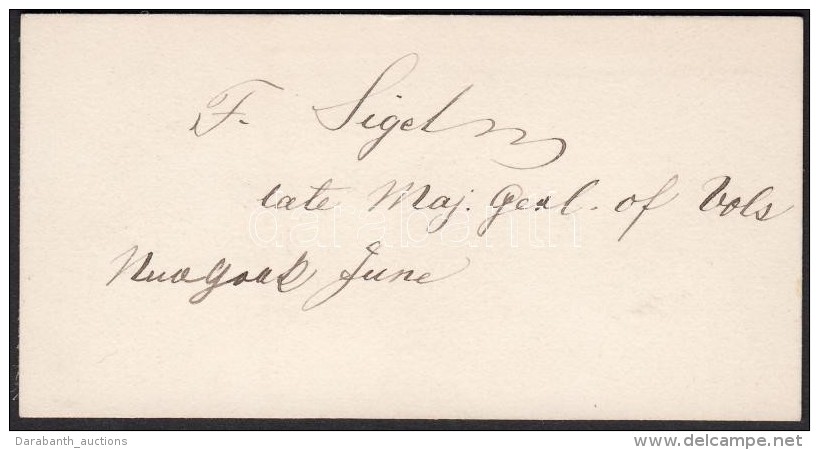 F. Sigel
late Maj. Genl. of Vols
New York June
darabanth
Darabanth_auctions
www.delcampe.net